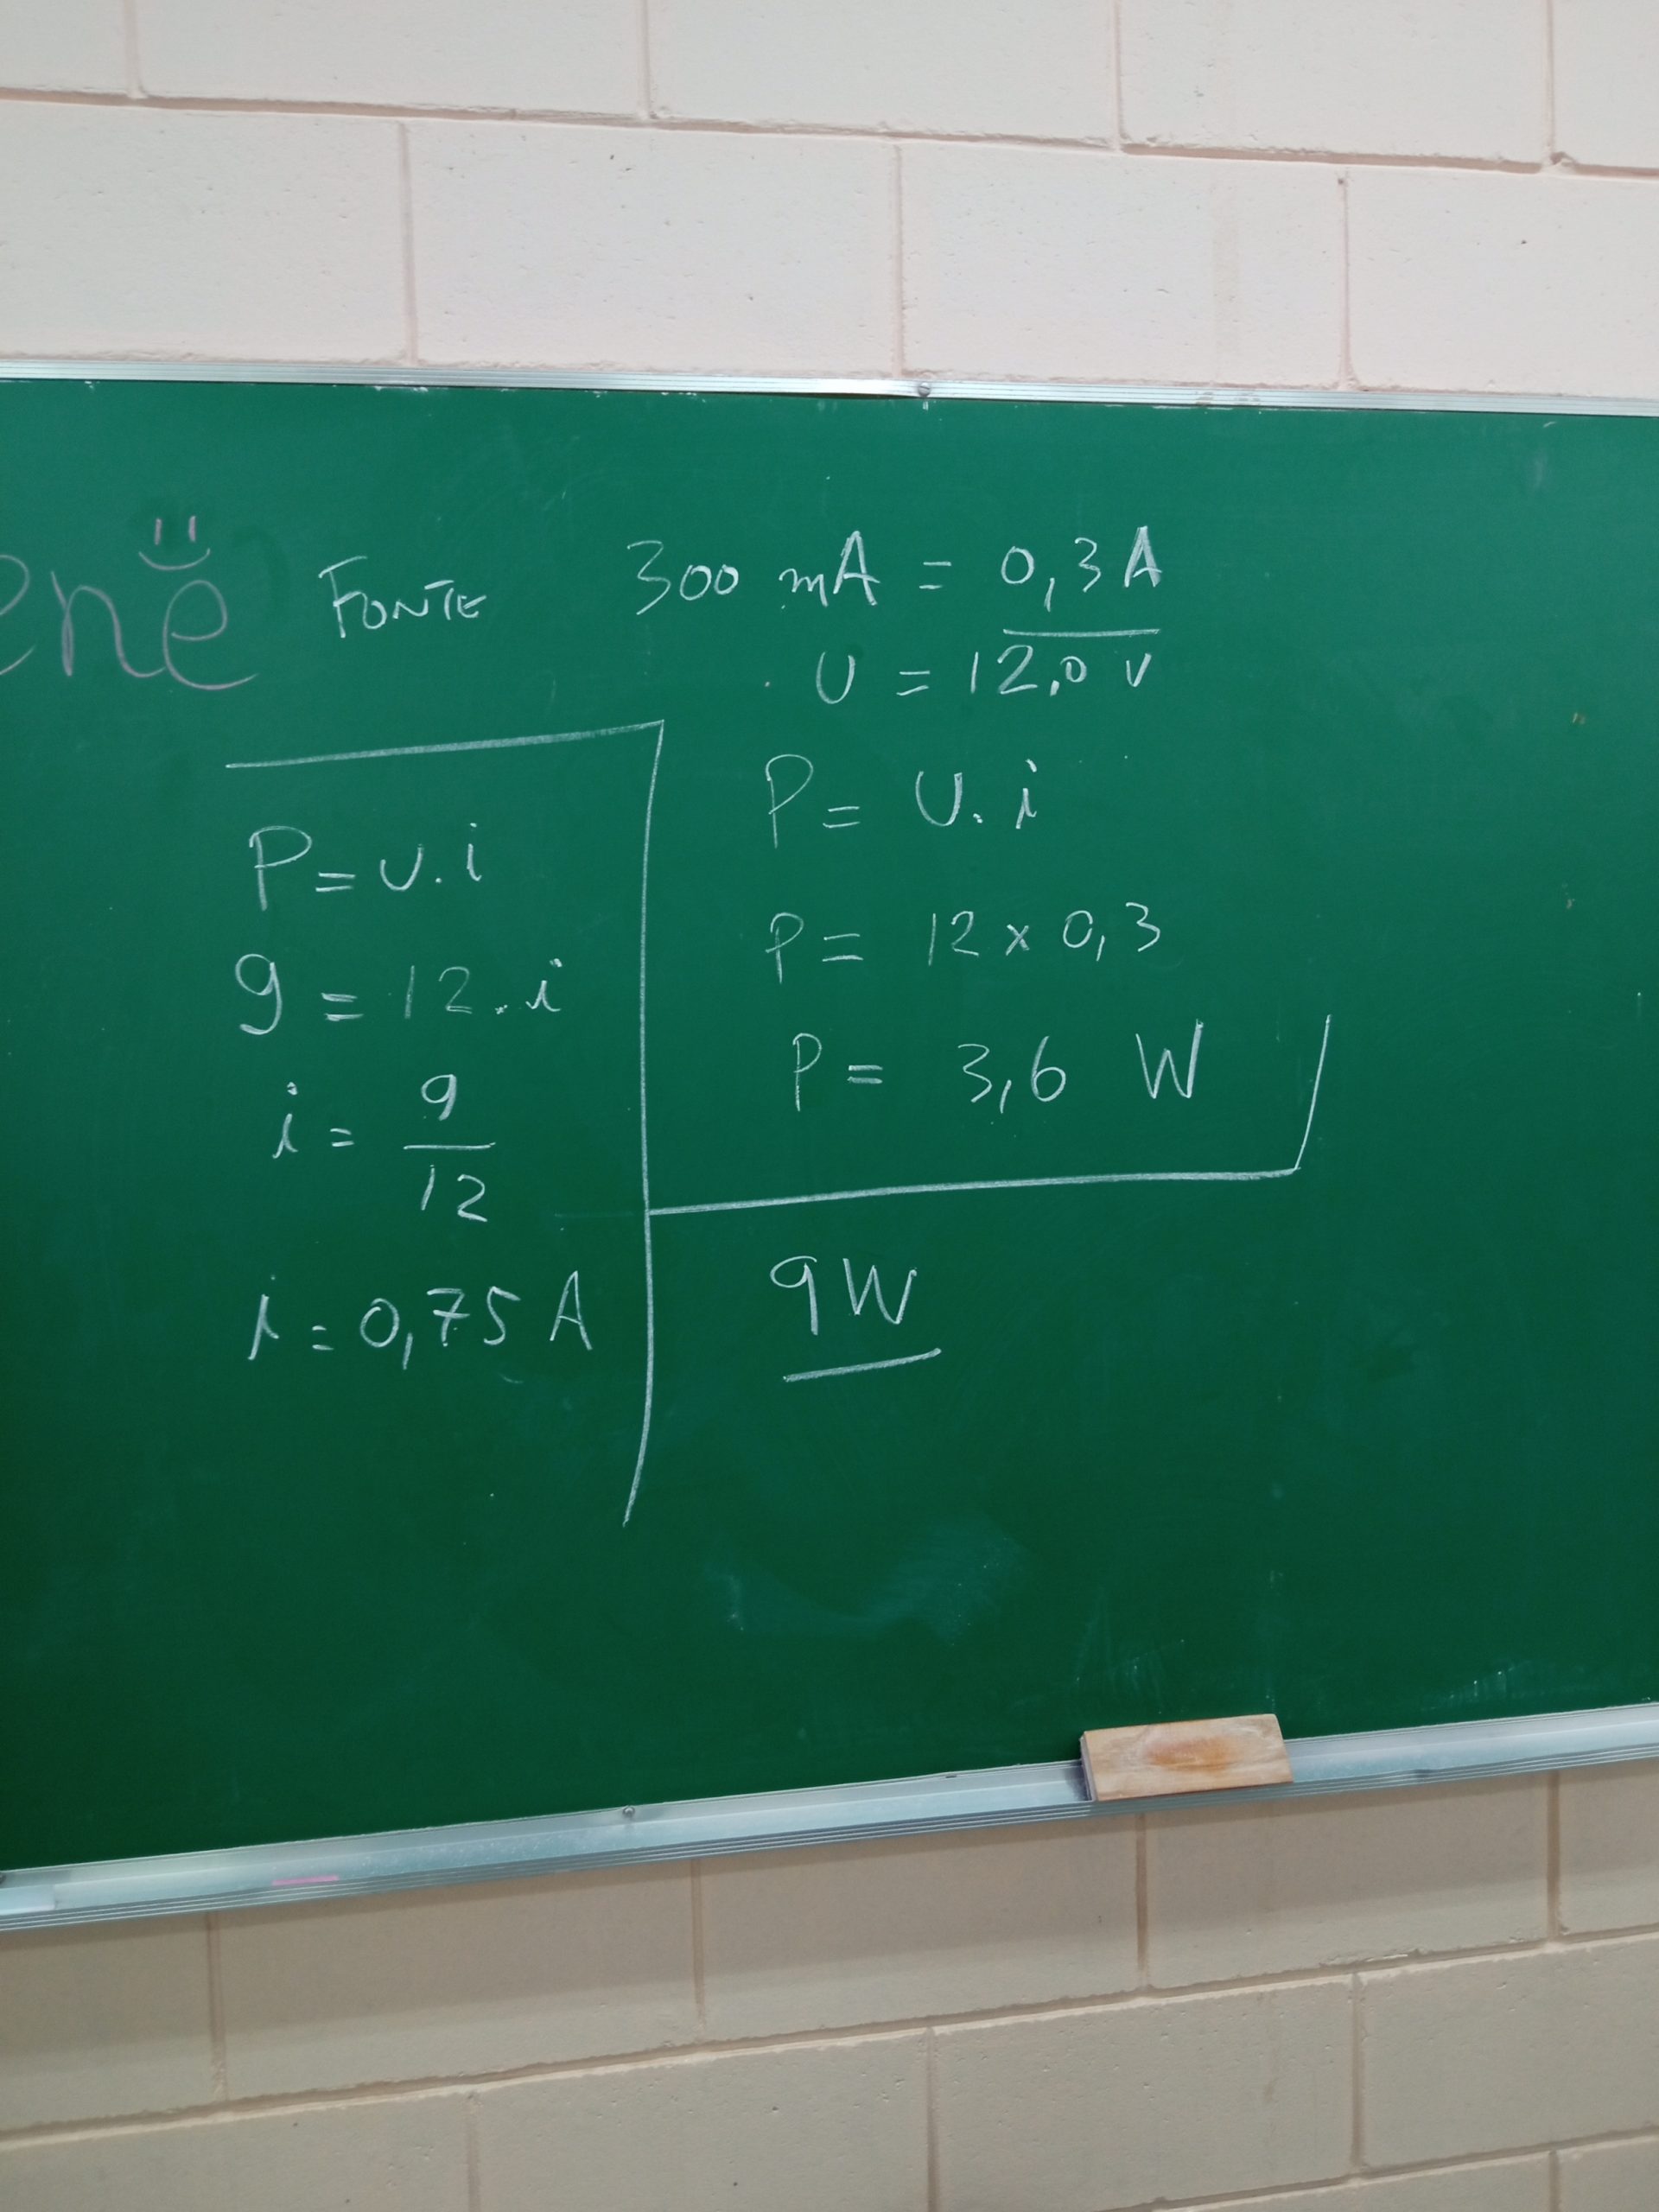 ene FONTE 300 mA = 0,3 A
U = 12,0 V
P = U . i
P = 12 x 0,3
P = 3,6 W
P = U . i
9 = 12 . i
i = 9/12
i = 0,75 A
9W